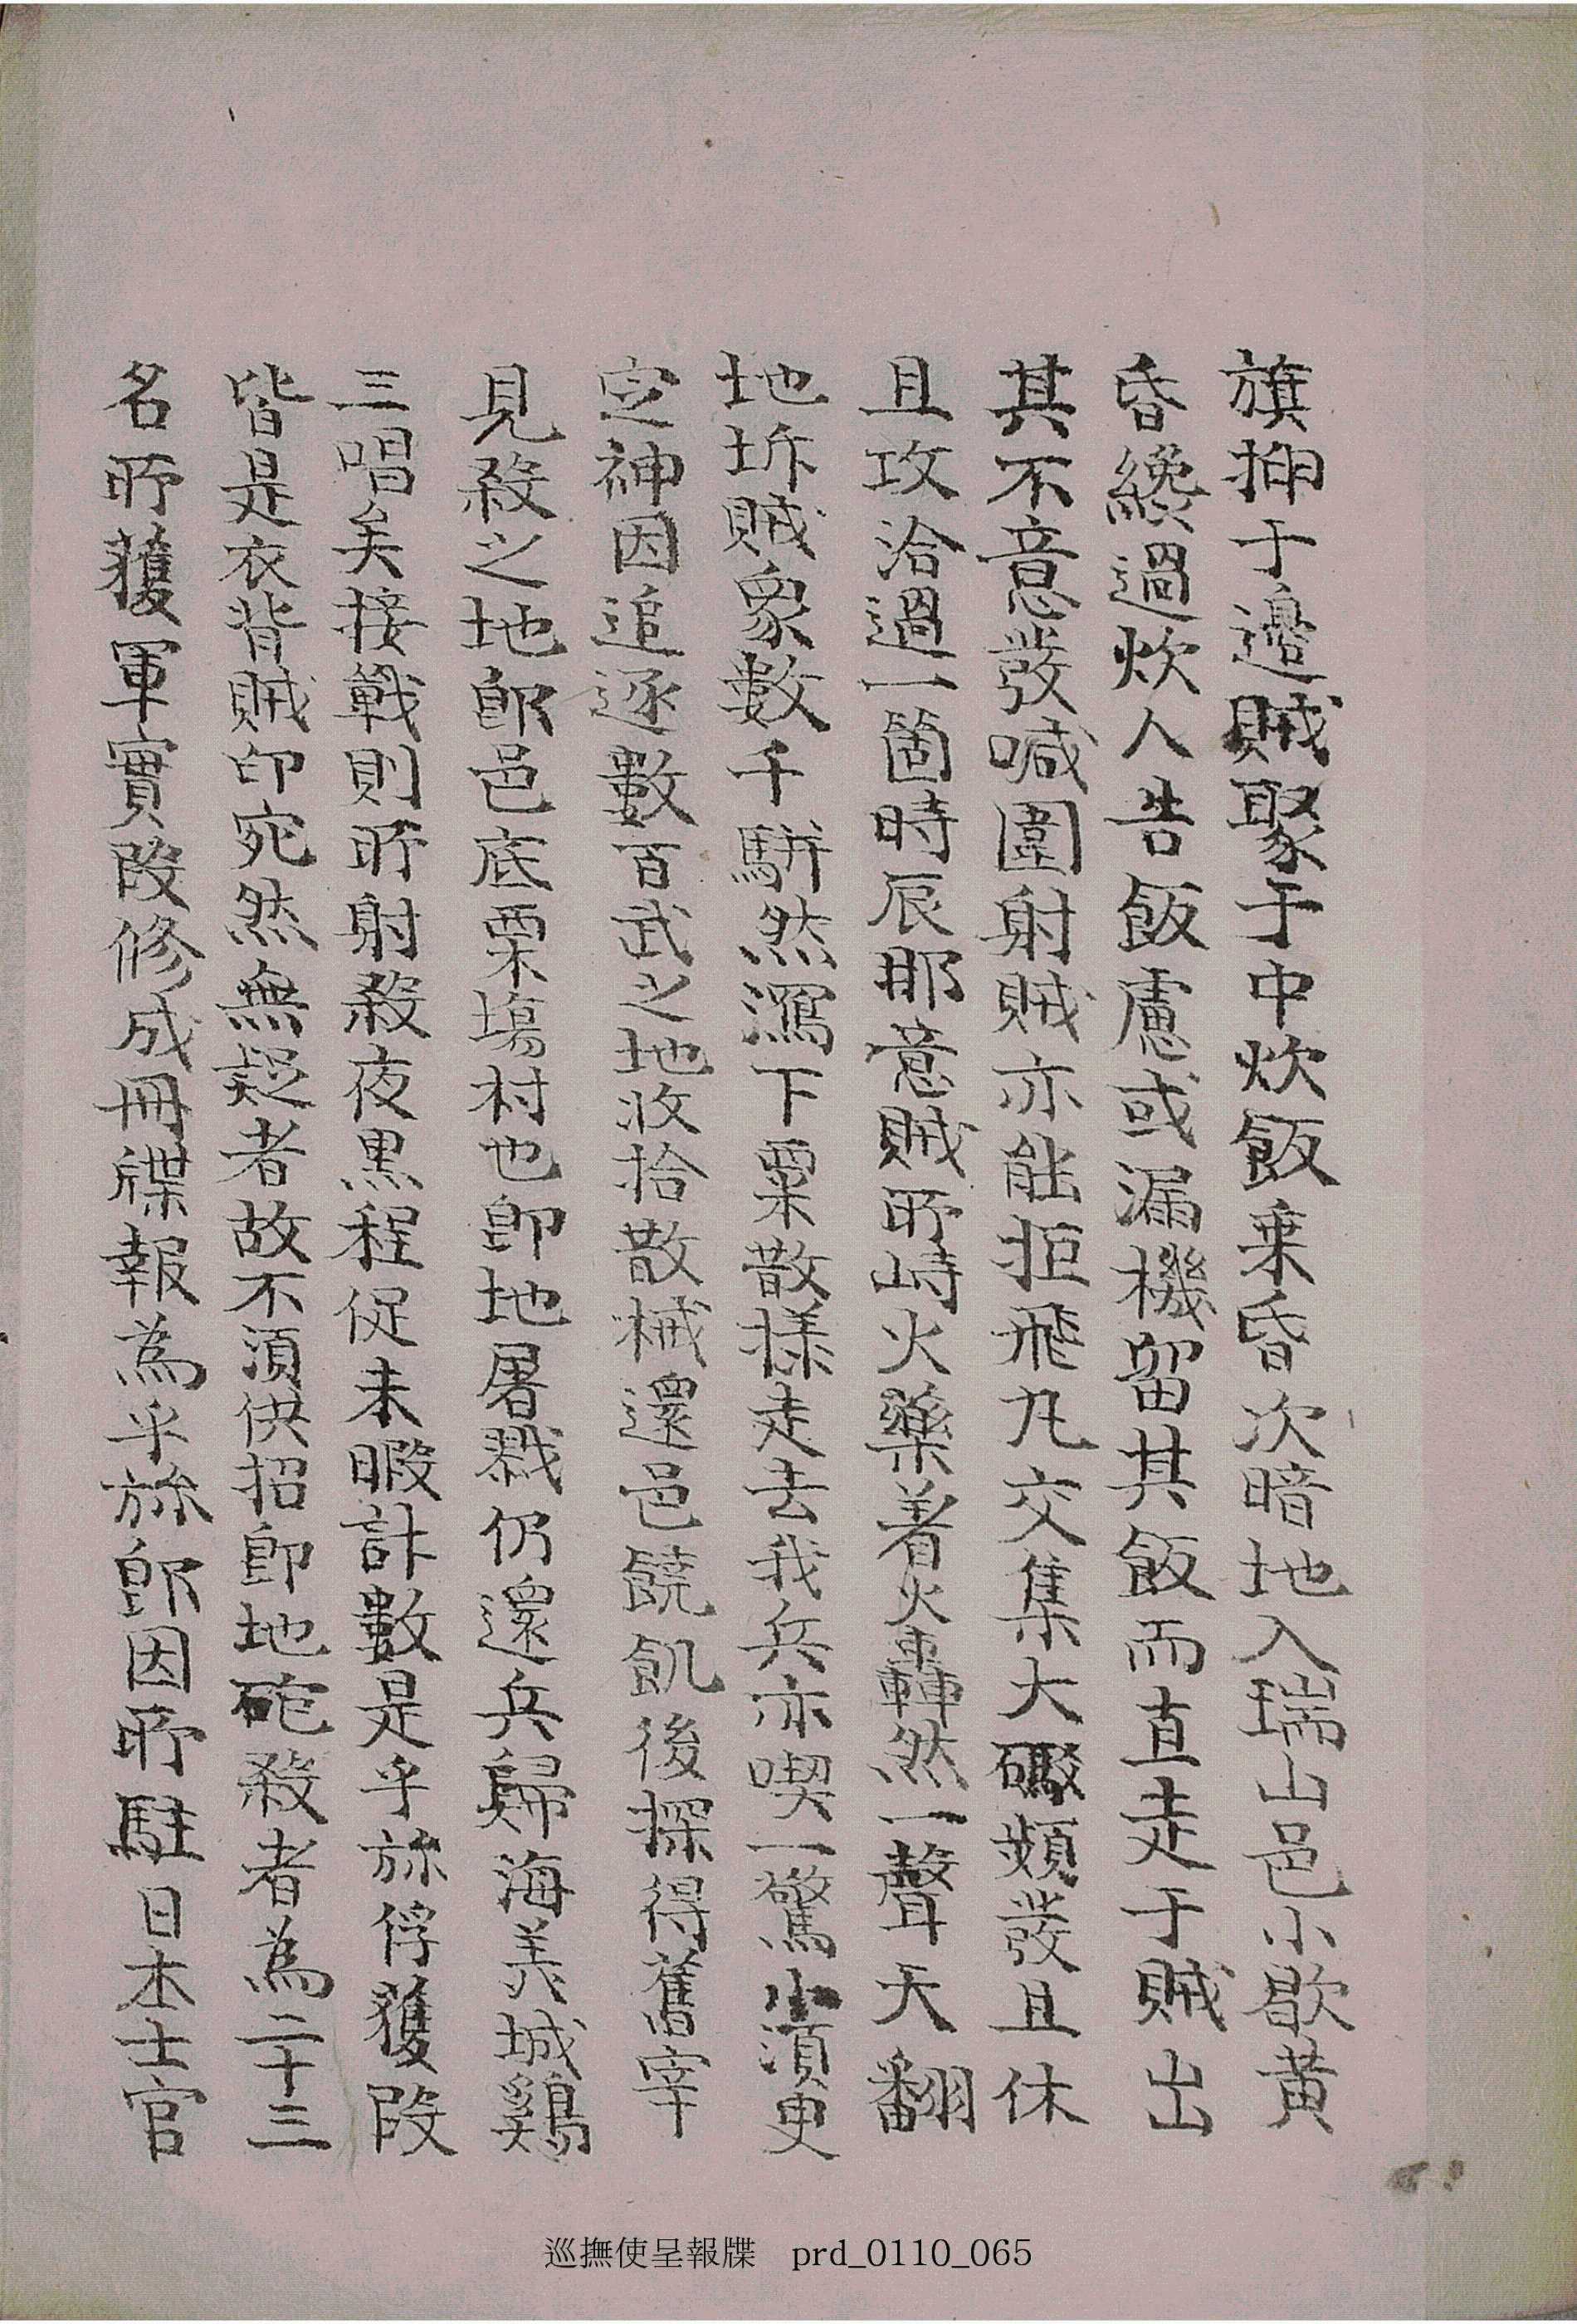 旗揷于邊賊聚于中炊飯乗昏次暗地入瑞山邑小歇黄
昏纔過炊人告飯慮或漏機留其飯而直走于賊出
其不意發喊圍射賊亦能拒飛丸交集大碾頻發且休
且攻洽過一箇時辰耶意賊所峙火藥着火轟然一聲天翻
地坼賊衆數千騈然瀉下粟散様走去我兵亦喫一驚小湏更
定神因追逐數百武之地收拾散械還邑饒飢後探得舊宰
見殺之地卽邑底栗塢村也卽地屠戮仍還兵歸海美城鷄
三唱矣接戰則所射殺夜黒程促未暇計數是乎旀俘獲段
皆是衣背賊印宛然無疑者故不湏供招卽地砲殺者為二十三
名所獲軍實段修成冊牒報為乎旀卽因所駐日本士官
巡撫使呈報牒 prd_0110_065